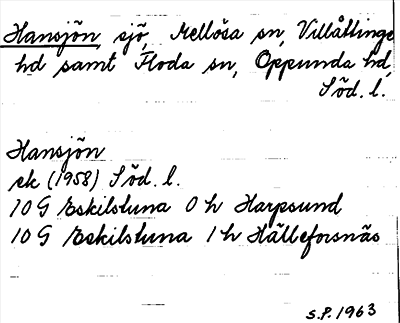 Hansjön, sjö, Mellösa sn, Villåttinge
hd samt Floda sn, Oppunda hd,
Söd. l.
Hansjön
ek (1958) Söd. l.
10 G Eskilstuna 0 h Harpsund
10 G Eskilstuna 1 h Hälleforsnäs
S.P. 1963